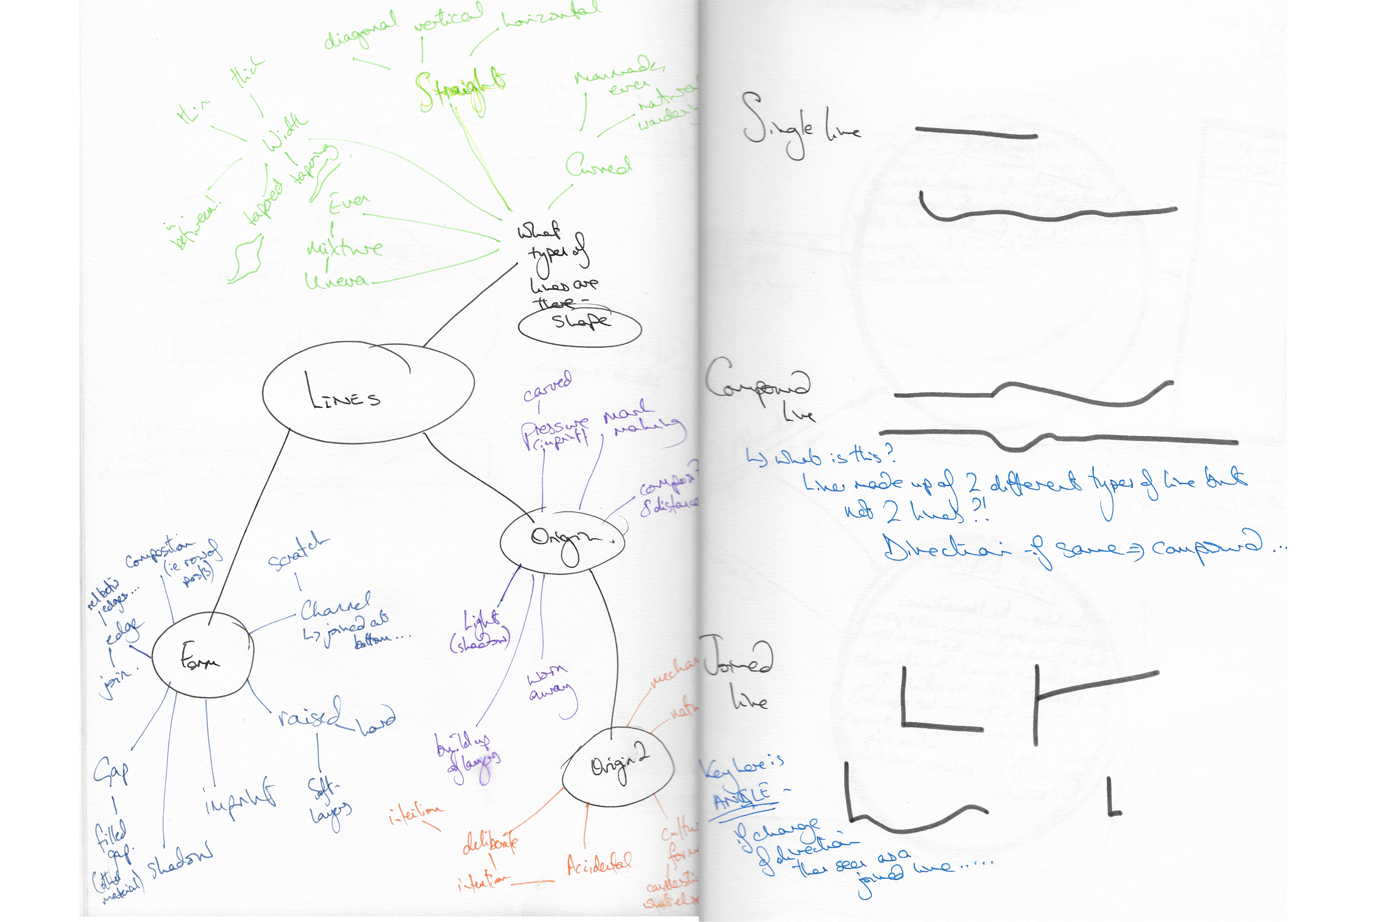 diagonal
vertical
horizontal
Straight
thick
thin
Width
in
between!
tapered
tapering
Even
Mixture
Uneven
manmade,
even
natural
Curved
What
types of
lines are
there -
Shape
LINES
carved
pressure
(imprint)
Mark
making
& distance
Origin
Light
(shadow)
worn
away
build up
of layers
Origin 2
intention
deliberate
intention
Accidental
Form
composition
(ie row of
posts)
edges...
edge
join
scratch
Channel
↳ joined at
bottom....
raised
hard
Soft-
layers
imprint
shadow
Gap
filled
gap.
(other
material)
Single line
Compound
line
↳ what is this?
Line made up of 2 different types of line but
not 2 lines?!
Direction - if same => compound ...
Joined
line
Key here is
ANGLE -
if change
of direction
then seen as a
joined line.....